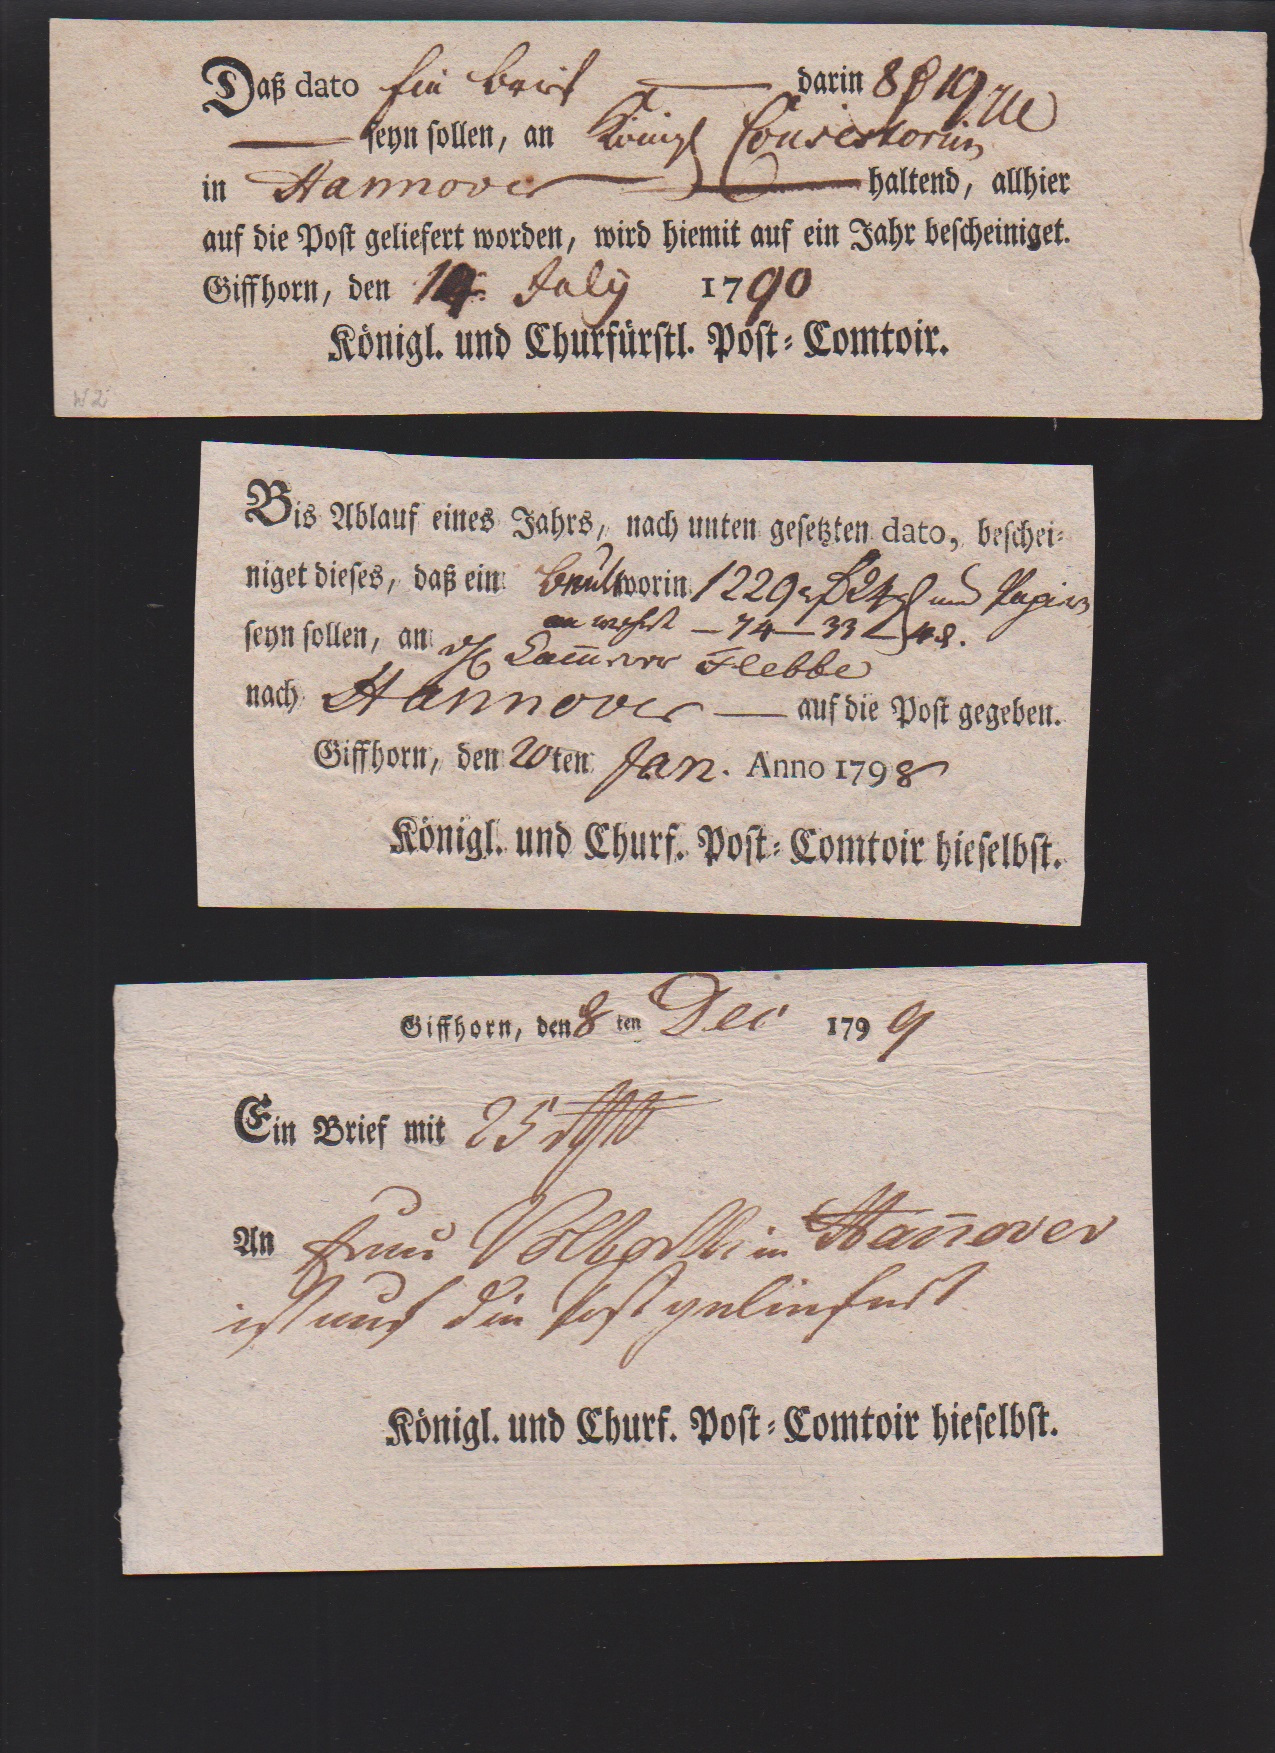 Daß dato Ein Brief darin 8
seyn sollen, an Königl Consistorium
in Hannover haltend, allhier
auf die Post geliefert worden, wird hiemit auf ein Jahr bescheiniget.
Giffhorn, den 14 July 1790
Königl. und Churfürstl. Post-Comtoir.
W 2
Bis Ablauf eines Jahrs, nach unten gesetzten dato, beschei-
niget dieses, daß ein Beutl worin 1229 24 und Papier
— 74 — 33
seyn sollen, an Flebbe
nach Hannover auf die Post gegeben.
Giffhorn, den 20ten Jan. Anno 1798
Königl. und Churf. Post-Comtoir hieselbst.
Giffhorn, den 8 ten Dec 1799
Ein Brief mit 25
An Frau in Hannover
ist auf die Post geliefert
Königl. und Churf. Post-Comtoir hieselbst.